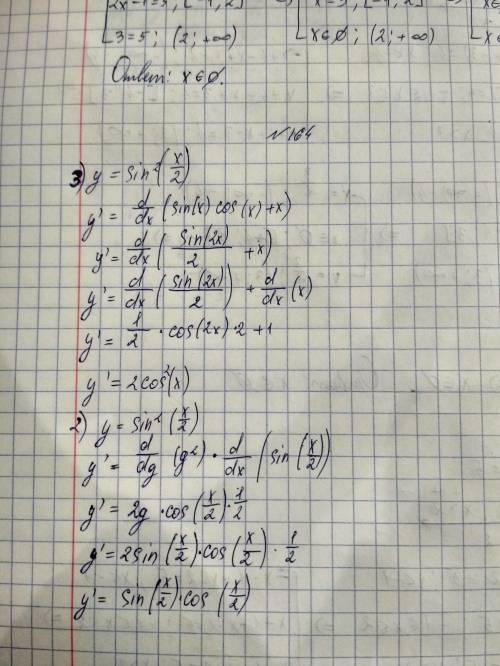 2x-1=5; [-1; 2]
3=5; (2; +∞)
x=3; [-1; 2]
x∈∅; (2; +∞)
Ответ: x∈∅.
№164
3) y = sin²(x/2)
y' = d/dx (sin(x) cos(x) + x)
y' = d/dx (sin(2x)/2 + x)
y' = d/dx (sin(2x)/2) + d/dx (x)
y' = 1/2 · cos(2x) · 2 + 1
y' = 2cos²(x)
2) y = sin² (x/2)
y' = d/dg (g²) · d/dx (sin (x/2))
y' = 2g · cos(x/2) · 1/2
y' = 2sin(x/2) · cos(x/2) · 1/2
y' = sin(x/2) · cos (x/2)